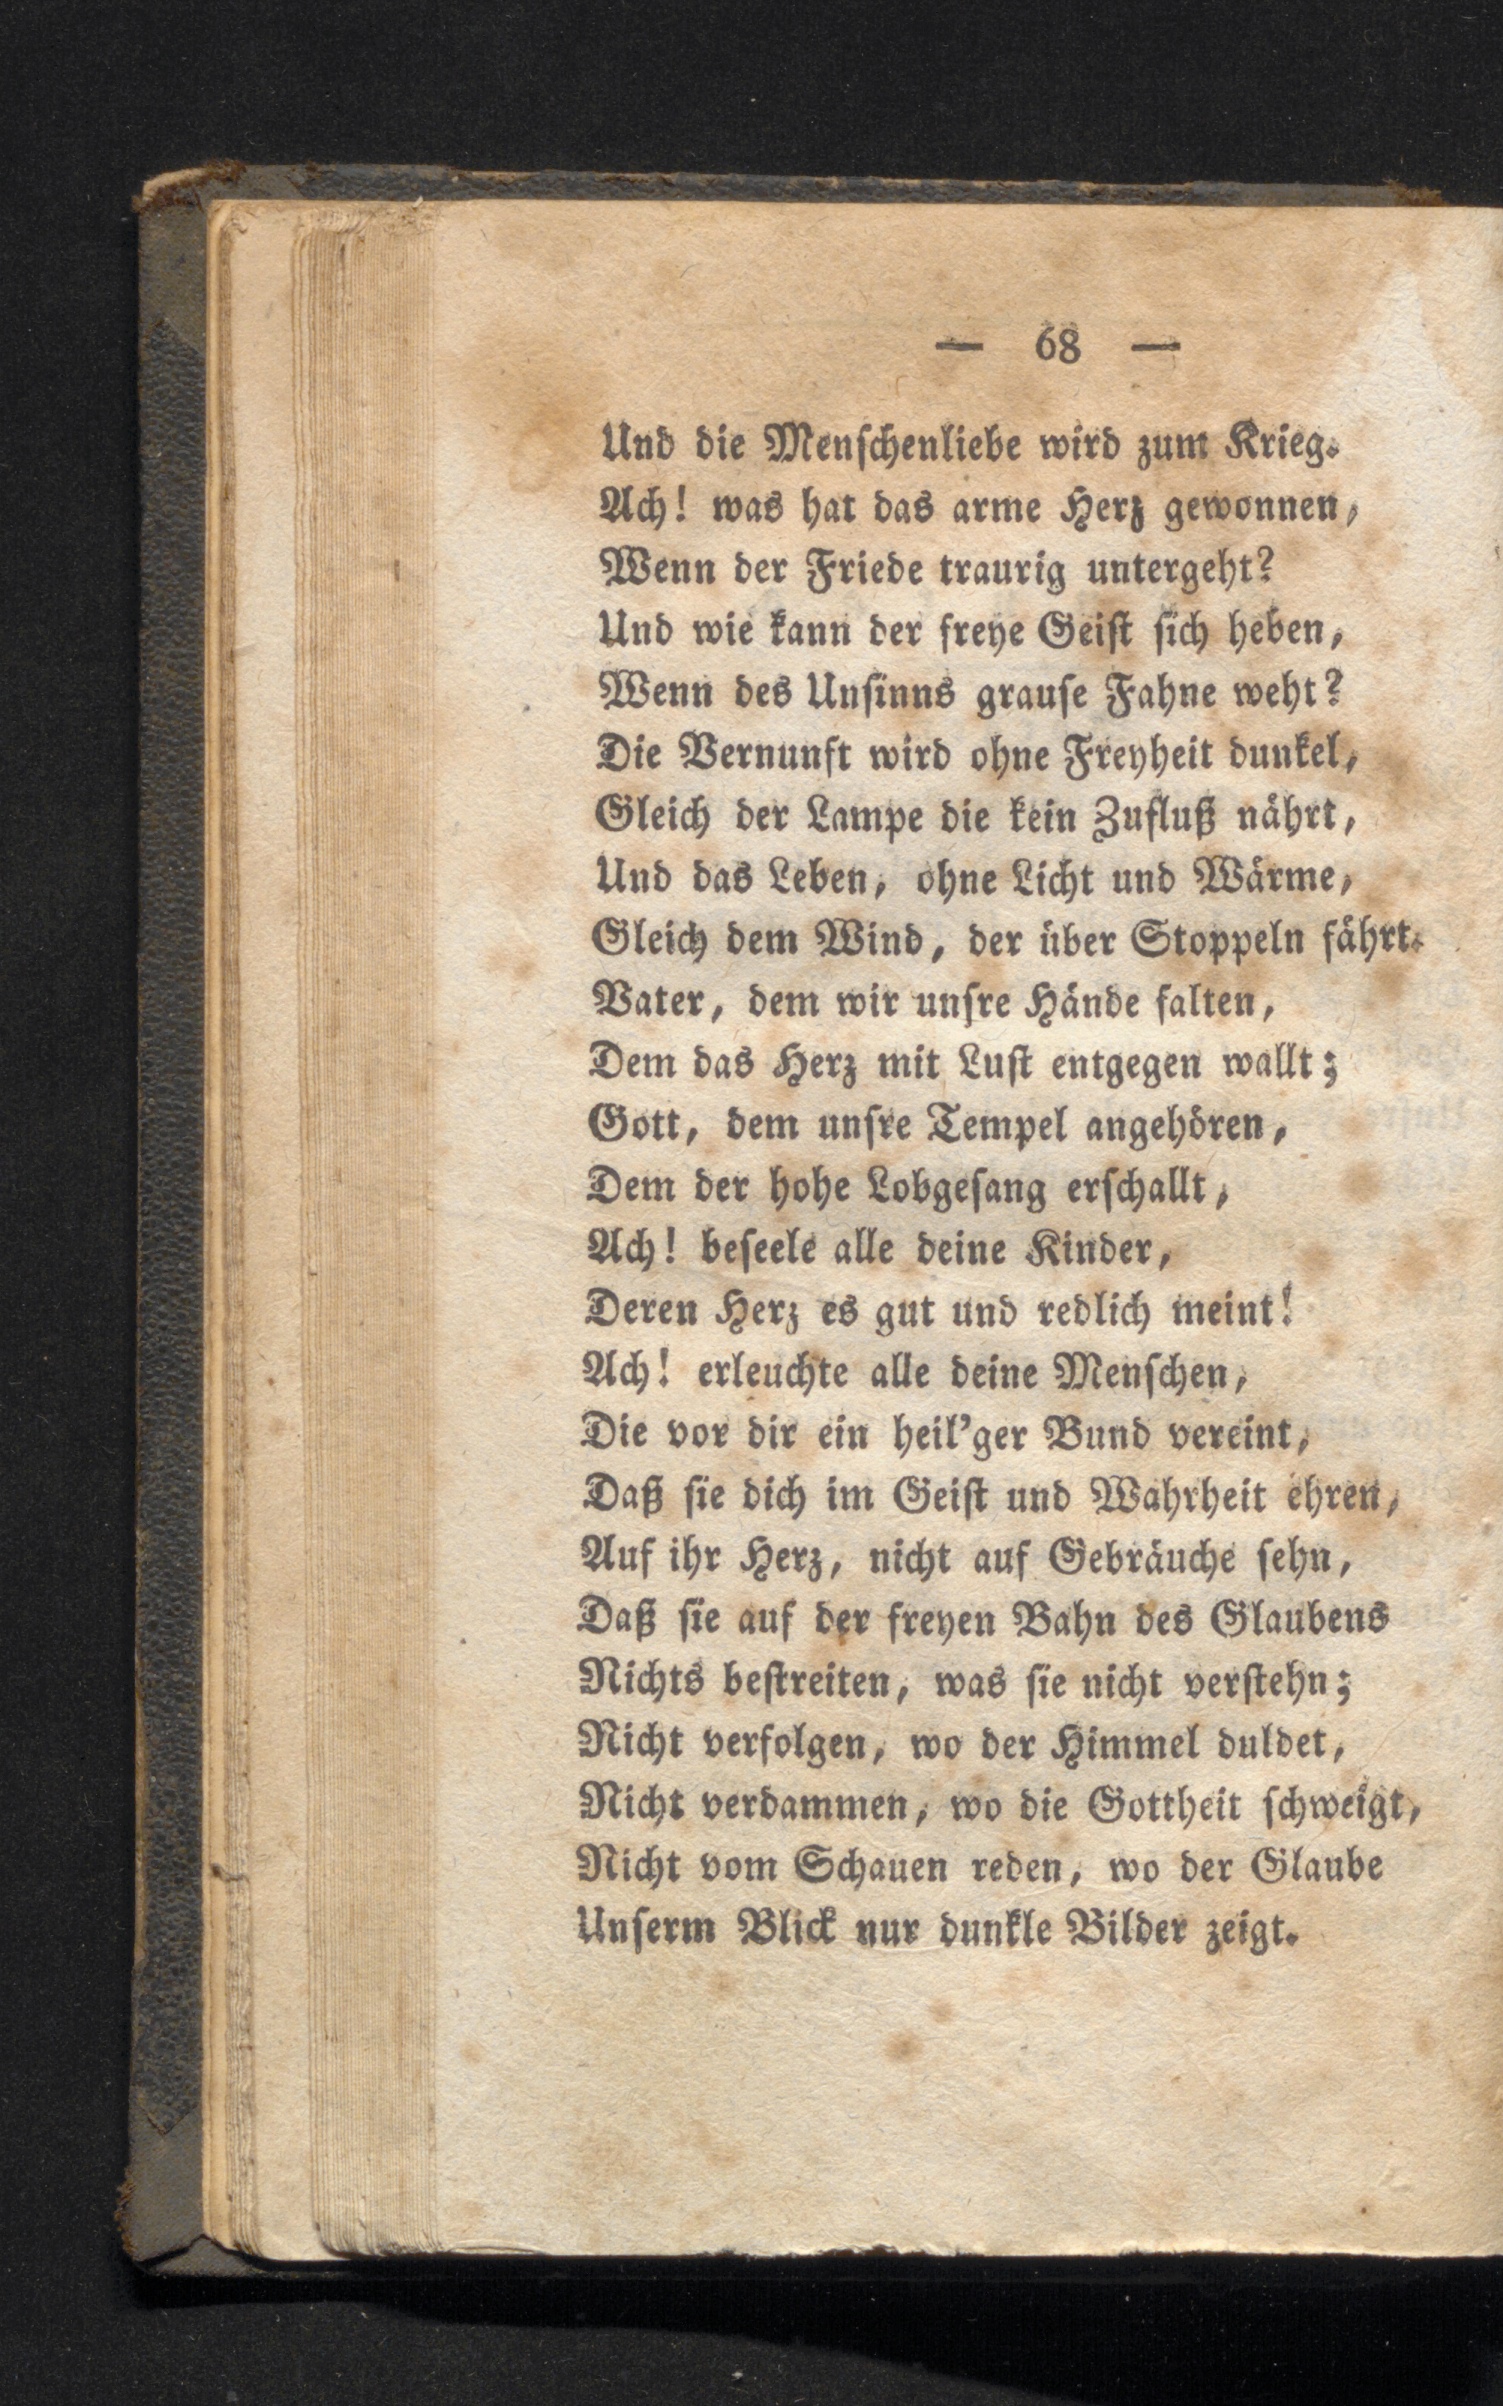 — 68 —
Und die Menſchenliebe wird zum Krieg.
Ach! was hat das arme Herz gewonnen,
Wenn der Friede traurig untergeht?
Und wie kann der freye Geiſt ſich heben,
Wenn des Unſinns grauſe Fahne weht?
Die Vernunft wird ohne Freyheit dunkel,
Gleich der Lampe die kein Zufluß nährt,
Und das Leben, ohne Licht und Wärme,
Gleich dem Wind, der über Stoppeln fährt.
Vater, dem wir unſre Hände falten,
Dem das Herz mit Luſt entgegen wallt;
Gott, dem unſre Tempel angehören,
Dem der hohe Lobgeſang erſchallt,
Ach! beſeele alle deine Kinder,
Deren Herz es gut und redlich meint!
Ach! erleuchte alle deine Menſchen,
Die vor dir ein heil'ger Bund vereint,
Daß ſie dich im Geiſt und Wahrheit ehren,
Auf ihr Herz, nicht auf Gebräuche ſehn,
Daß ſie auf der freyen Bahn des Glaubens
Nichts beſtreiten, was ſie nicht verſtehn;
Nicht verfolgen, wo der Himmel duldet,
Nicht verdammen, wo die Gottheit ſchweigt,
Nicht vom Schauen reden, wo der Glaube
Unſerm Blick nur dunkle Bilder zeigt.